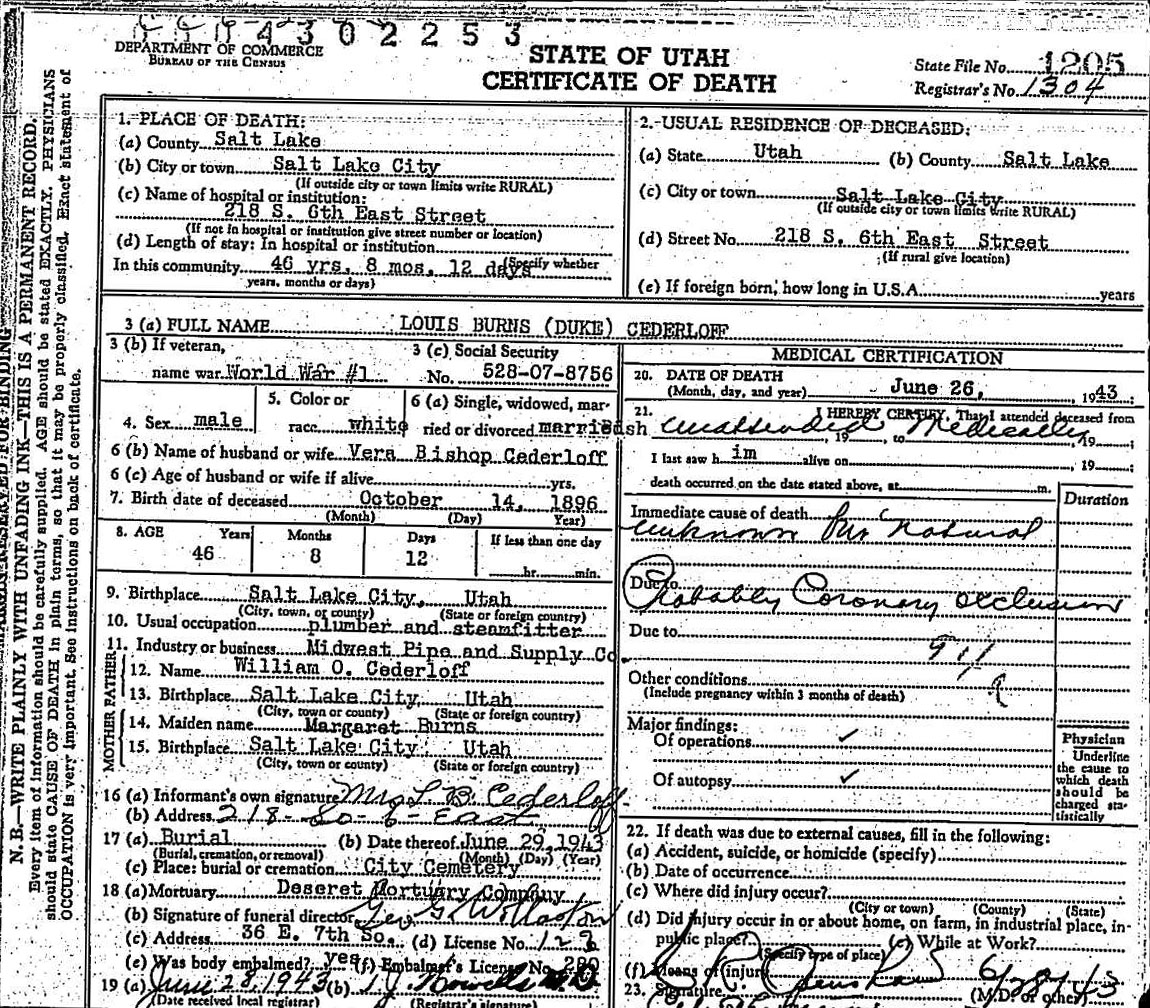 430 2253
DEPARTMENT OF COMMERCE
BUREAU OF THE CENSUS
STATE OF UTAH
CERTIFICATE OF DEATH
State File No. 1205
Registrar's No. 1304
MARGIN RESERVED FOR BINDING
N. B.—WRITE PLAINLY WITH UNFADING INK—THIS IS A PERMANENT RECORD.
Every item of information should be carefully supplied. AGE should be stated EXACTLY. PHYSICIANS
should state CAUSE OF DEATH in plain terms, so that it may be properly classified. Exact statement of
OCCUPATION is very important. See instructions on back of certificate.
1. PLACE OF DEATH:
(a) County Salt Lake
(b) City or town Salt Lake City
(If outside city or town limits write RURAL)
(c) Name of hospital or institution:
218 S. 6th East Street
(If not in hospital or institution give street number or location)
(d) Length of stay: In hospital or institution
In this community 46 yrs. 8 mos. 12 days (Specify whether
years, months or days)
2. USUAL RESIDENCE OF DECEASED:
(a) State Utah (b) County Salt Lake
(c) City or town Salt Lake City
(If outside city or town limits write RURAL)
(d) Street No. 218 S. 6th East Street
(If rural give location)
(e) If foreign born, how long in U.S.A. years
3 (a) FULL NAME LOUIS BURNS (DUKE) CEDERLOFF
3 (b) If veteran, 3 (c) Social Security
name war World War #1 No. 528-07-8756
4. Sex male 5. Color or race white 6 (a) Single, widowed, married or divorced married
6 (b) Name of husband or wife Vera Bishop Cederloff
6 (c) Age of husband or wife if alive yrs.
7. Birth date of deceased October 14, 1896
(Month) (Day) Year)
8. AGE Years Months Days If less than one day
46 8 12 hr. min.
9. Birthplace Salt Lake City, Utah
(City, town, or county) (State or foreign country)
10. Usual occupation plumber and steamfitter
11. Industry or business Midwest Pipe and Supply Co.
FATHER
12. Name William O. Cederloff
13. Birthplace Salt Lake City Utah
(City, town or county) (State or foreign country)
MOTHER
14. Maiden name Margaret Burns
15. Birthplace Salt Lake City Utah
(City, town or county) (State or foreign country)
16 (a) Informant's own signature Mrs L. B. Cederloff
(b) Address 218 - So - 6 - East
17 (a) Burial (b) Date thereof June 29, 1943
(Burial, cremation, or removal) (Month) (Day) (Year)
(c) Place: burial or cremation City Cemetery
18 (a) Mortuary Deseret Mortuary Company
(b) Signature of funeral director Geo G
(c) Address 36 E. 7th So. (d) License No. 123
(e) Was body embalmed? yes (f) Embalmer's License No. 280
19 (a) June 28, 1943 (b)
(Date received local registrar) (Registrar's signature)
MEDICAL CERTIFICATION
20. DATE OF DEATH
(Month, day, and year) June 26, 1943
21. I HEREBY CERTIFY, That I attended deceased from
sh Unattended, 19 to Medically 19
I last saw h im alive on , 19 ;
death occurred on the date stated above, at m.
Duration
Immediate cause of death
unknown but natural
Due to
Probably Coronary occlusion
Due to
Other conditions
(Include pregnancy within 3 months of death)
Major findings:
Of operations ✓
Of autopsy ✓
Physician
Underline
the cause to
which death
should be
charged sta-
tistically
22. If death was due to external causes, fill in the following:
(a) Accident, suicide, or homicide (specify)
(b) Date of occurrence
(c) Where did injury occur?
(City or town) (County) (State)
(d) Did injury occur in or about home, on farm, in industrial place, in
public place? (e) While at Work?
(Specify type of place)
(f) Means of injury 6/28/43
23. Signature (M.D. or other)